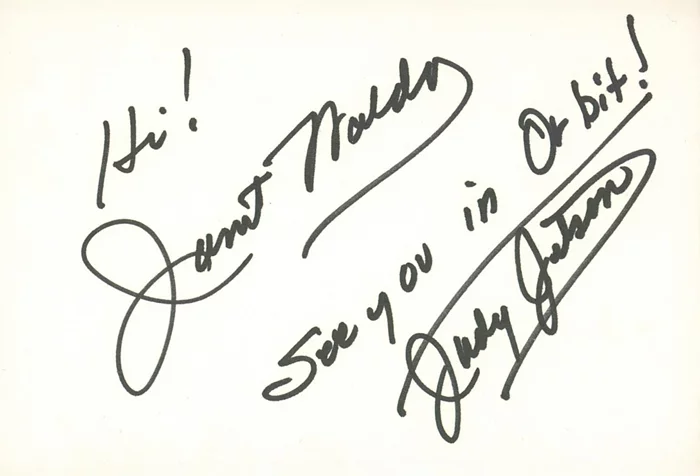 Hi!
Janet Waldo
See you in Orbit!
Judy Jetson